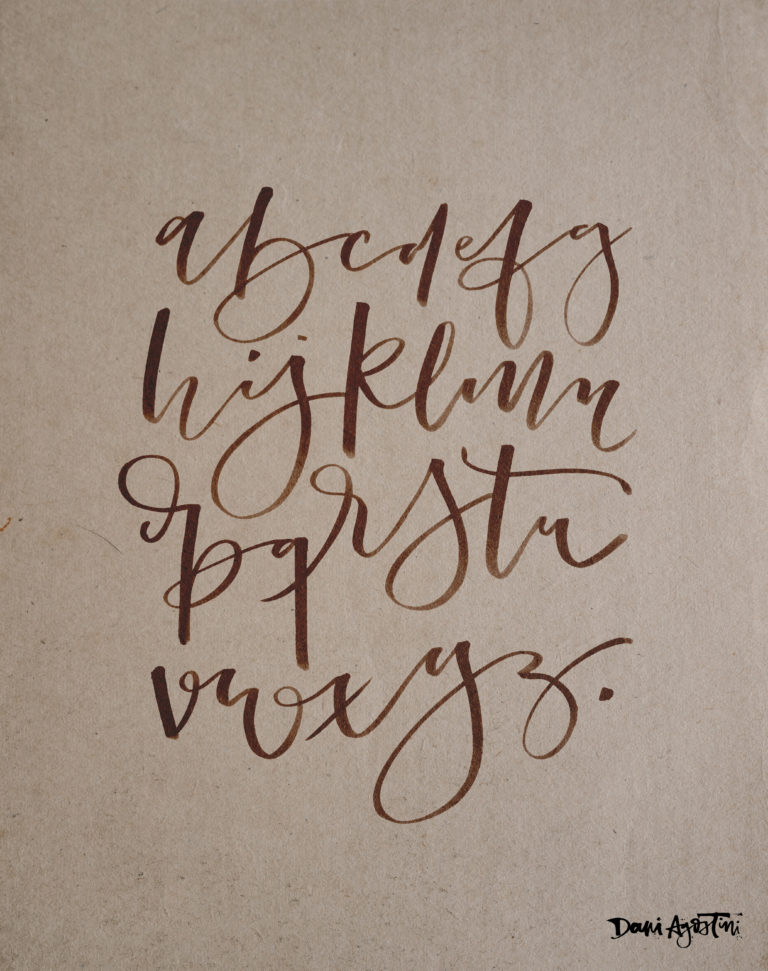 abcdefg
hijklmn
opqrstu
vwxyz.
Dani Agostini